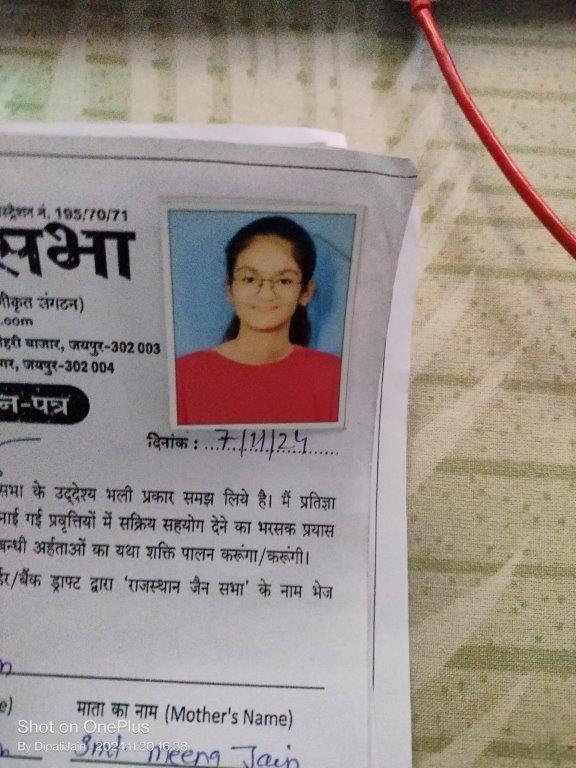 स्ट्रेशन नं. 195/70/71
सभा
कृत संगठन)
.com
हरी बाजार, जयपुर-302 003
गर, जयपुर-302 004
न-पत्र
दिनांक : 7/11/24
सभा के उद्देश्य भली प्रकार समझ लिये है। मैं प्रतिज्ञा
नाई गई प्रवृत्तियों में सक्रिय सहयोग देने का भरसक प्रयास
बन्धी अर्हताओं का यथा शक्ति पालन करूंगा/करूंगी।
र्डर/बैंक ड्राफ्ट द्वारा 'राजस्थान जैन सभा' के नाम भेज
e) माता का नाम (Mother's Name)
Smt meena Jain
Shot on OnePlus
By DipaliJain 2024.11.20 16:38